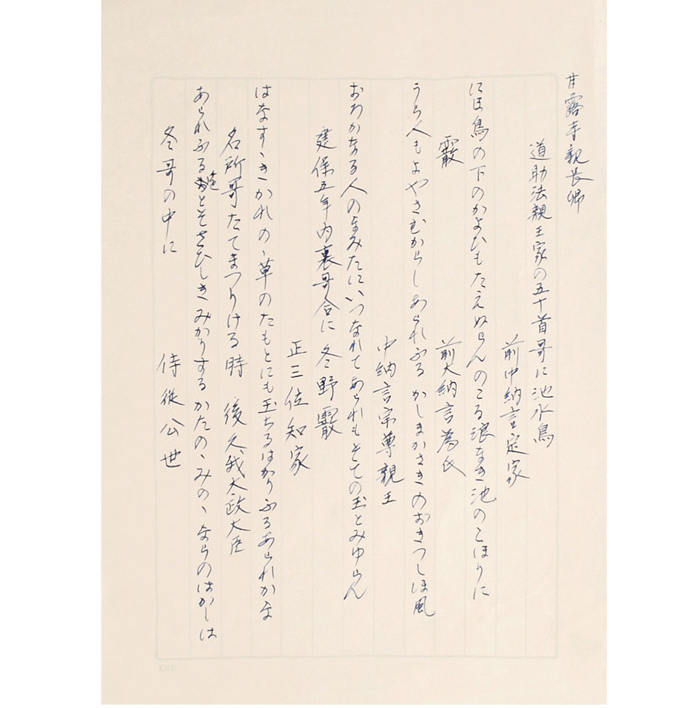 甘露寺親長卿
道助法親王家の五十首哥に池水鳥
前中納言定家
にほ鳥の下のかよひもたえぬらんのこる浪なき池のこほりに
霰
前大納言為氏
うら人もよやさむからしあられふるかしまかさきのおきつしほ風
中納言宗尊親王
おろかなる人のなみたにいつなれてあられもそての玉とみゆらん
建保五年内裏哥合に冬野霰
正三位知家
はなすゝきかれのゝ草のたもとにも玉ちるはかりふるあられかな
名所哥たてまつりける時 後久我太政大臣
あられふるをとそさひしきみかりするかたのゝみのゝならのはかしは
冬哥の中に
侍従公世